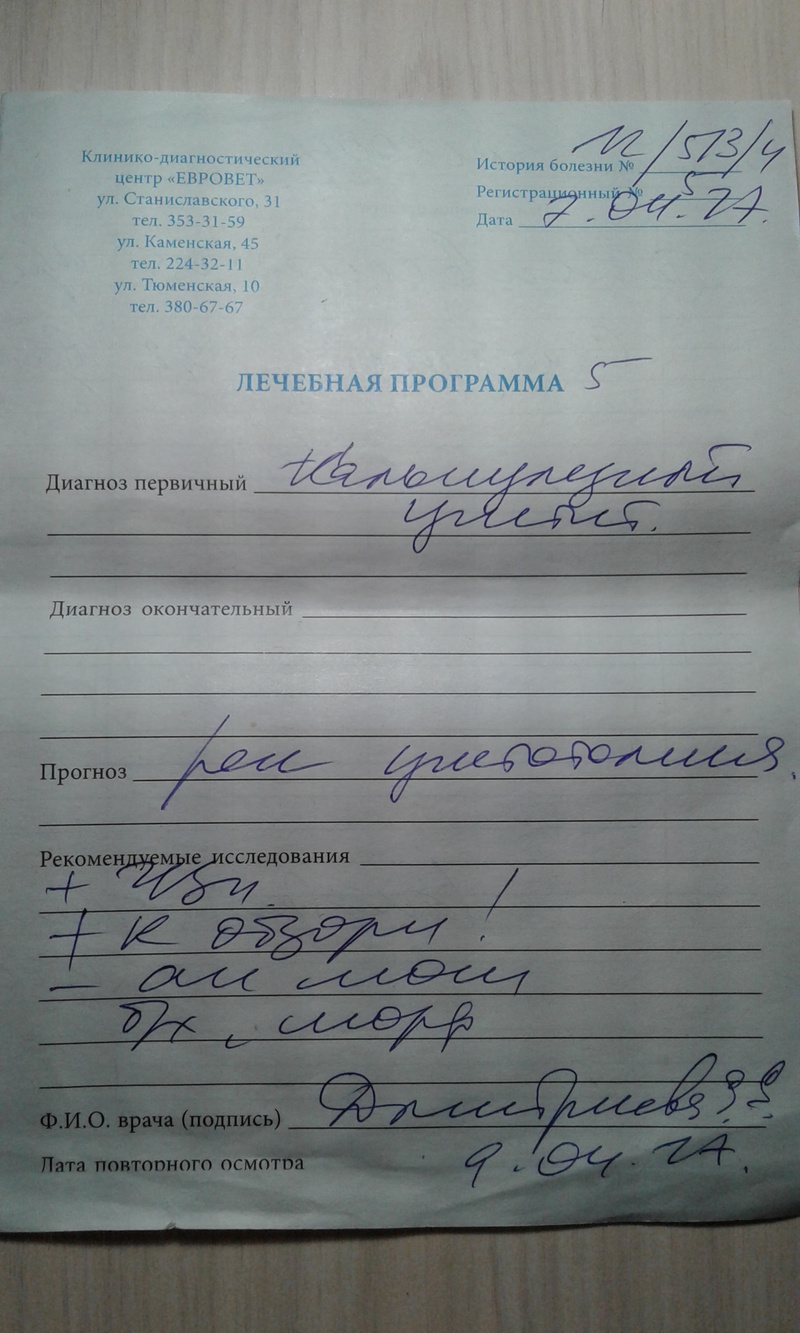 Клинико-диагностический
центр «ЕВРОВЕТ»
ул. Станиславского, 31
тел. 353-31-59
ул. Каменская, 45
тел. 224-32-11
ул. Тюменская, 10
тел. 380-67-67
История болезни № 12/513/4
Регистрационный № 5
Дата 7.04.17.
ЛЕЧЕБНАЯ ПРОГРАММА 5
Диагноз первичный Калькулезный
цистит.
Диагноз окончательный
Прогноз рек цистотомия,
Рекомендуемые исследования
+ УЗИ
+ R обзорн !
- ан мочи
б/х, морф
Ф.И.О. врача (подпись) Дмитриева
Дата повторного осмотра 9.04.17.